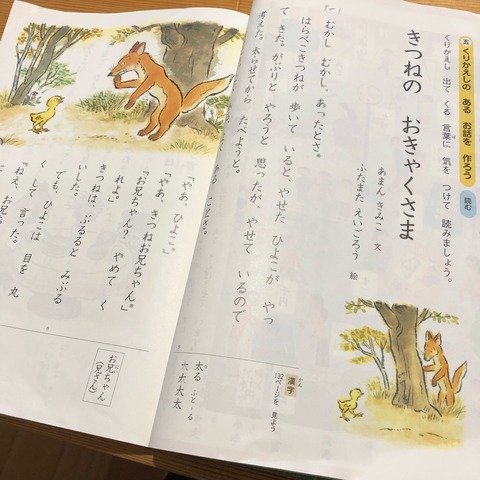 五 くりかえしの ある お話を 作ろう 読む
くりかえし 出て くる 言葉に 気を つけて 読みましょう。
きつねの おきゃくさま
あまん きみこ 文
ふたまた えいごろう 絵
(一) むかし むかし、あったとさ。
はらぺこきつねが 歩いて いると、やせた ひよこが やっ
て きた。がぶりと やろうと 思ったが、やせて いるので
考えた。太らせてから たべようと。
漢字
かん
132ページを 見よう
太る ふと-る
太 大 大 太
「やあ、ひよこ。」
「やあ、きつねお兄ちゃん。」
「お兄ちゃん? やめて く
れよ。」
きつねは、ぶるると みぶる
いした。
でも、ひよこは 目を 丸
く して 言った。
「ねえ、お兄
お兄ちゃん
(兄さん)
5